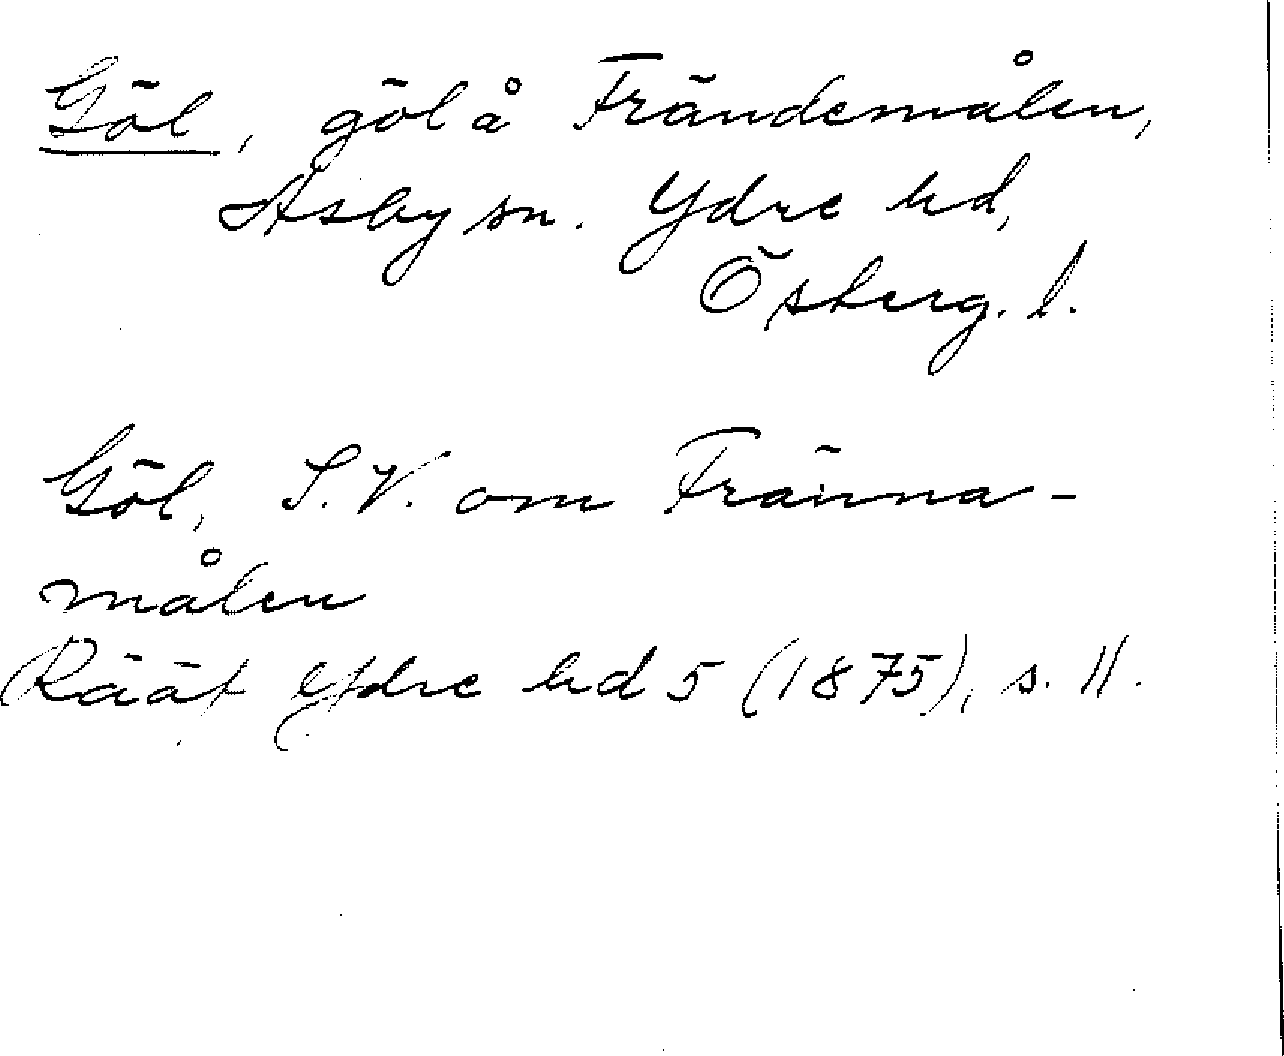 Göl, göl å Frändemålen,
Asby sn. Ydre hd,
Österg. l.
Göl, S.V. om Fränna-
målen
Rääf Ydre hd 5 (1875), s. 11.